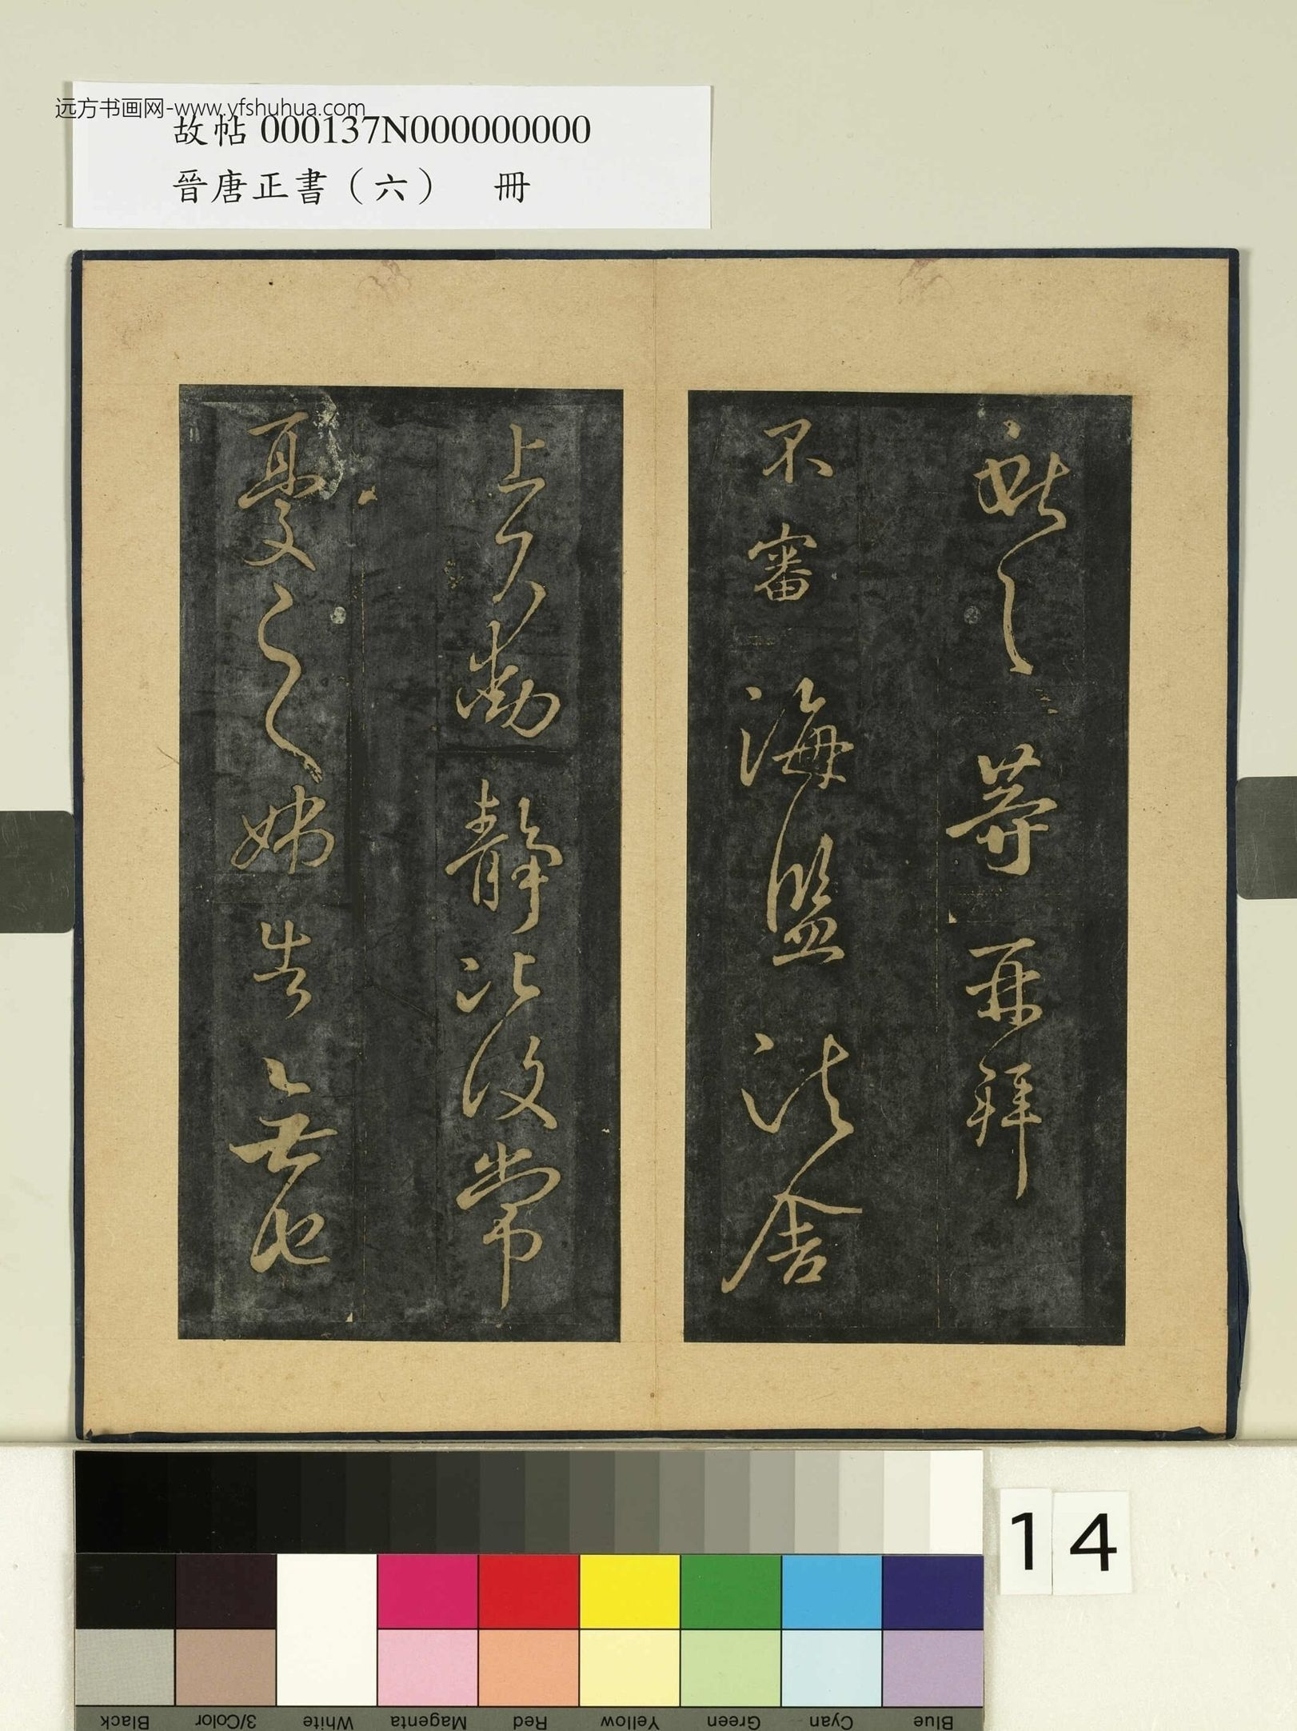 远方书画网-www.yfshuhua.com
故帖 000137N000000000
晉唐正書（六） 冊
獻之等再拜
不審海鹽諸舍
上下動靜比復常
憂之姊告無他
14
Blue Cyan Green Yellow Red Magenta White 3/Color Black